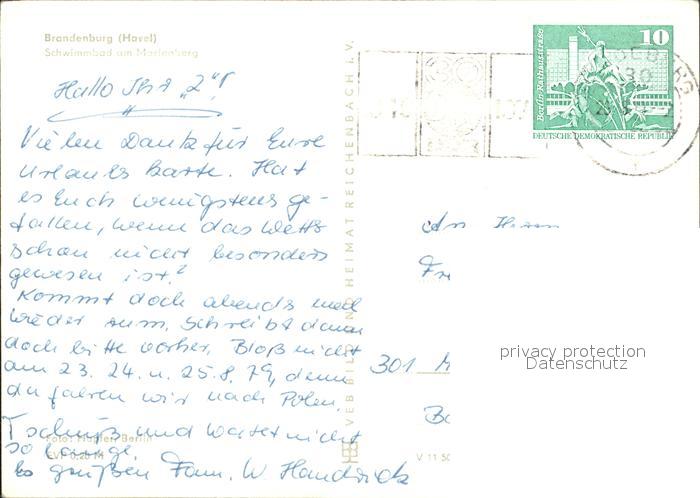 Brandenburg (Havel)
Schwimmbad am Marienberg
Hallo Ihr "2"!
Vielen Dank für Eure
Urlaubs Karte. Hat
es Euch wenigstens ge-
fallen, wenn das Wetter
schon nicht besonders
gewesen ist?
Kommt doch abends mal
wieder rum, schreibt dann
doch bitte vorher. Bloß nicht
am 23. 24. u. 25.8.79, denn
da fahren wir nach Polen.
Tschüß und wartet nicht
so lange.
Es grüßen Fam. W
Foto: Berlin
EVP 0,20 M
VEB BILD UND HEIMAT REICHENBACH I. V.
V 11 50
10
Berlin, Rathausstraße
DEUTSCHE DEMOKRATISCHE REPUBLIK
An Herrn
Fr
301 M
privacy protection
Datenschutz